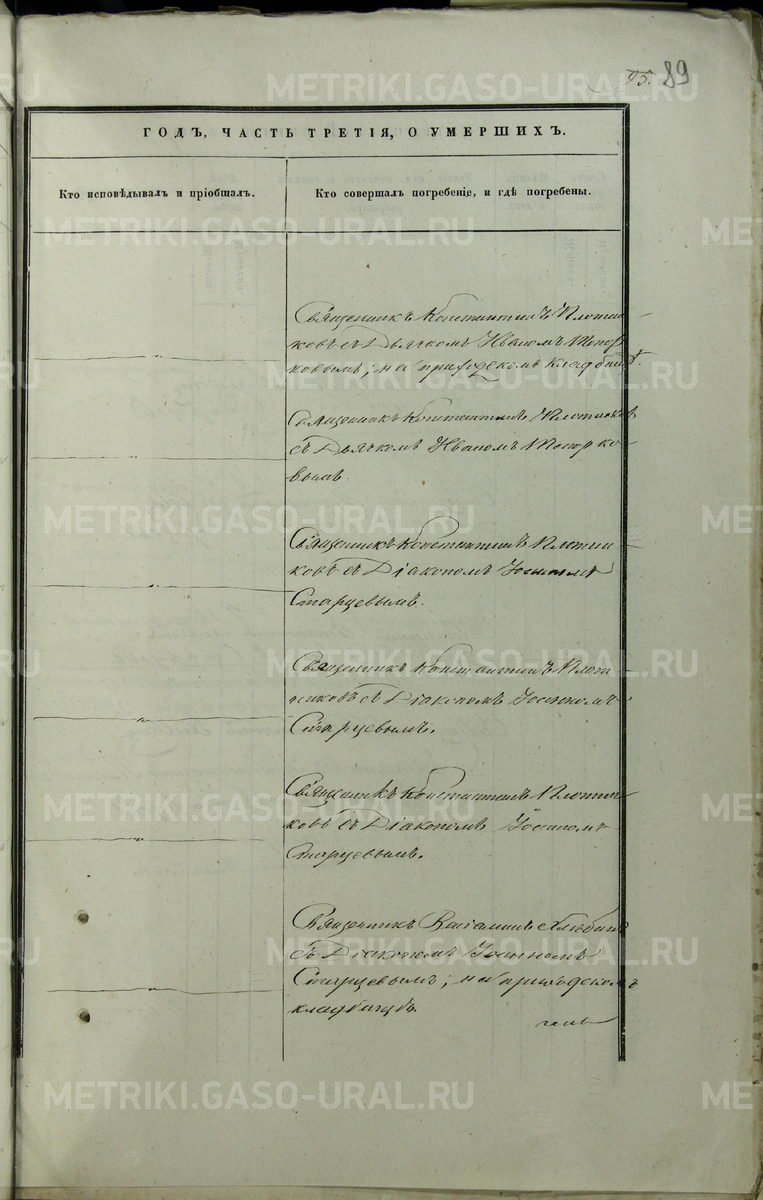 95. 89
ГОДЪ, ЧАСТЬ ТРЕТІЯ, О УМЕРШИХЪ.
Кто исповѣдывалъ и пріобщалъ.
Кто совершалъ погребеніе, и гдѣ погребены.
Священникъ Константинъ Плотни
ковъ съ Дьячкомъ Иваномъ Топор
ковымъ; на приходскомъ кладбищѣ.
Священникъ Константинъ Плотников
съ Дьячкомъ Иваномъ Топорко
вымъ.
Священникъ Константинъ Плотни
ковъ съ Діакономъ Іосипомъ
Старцевымъ.
Священникъ Константинъ Плот
никовъ съ Діакономъ Іосипомъ
Старцевымъ.
Священникъ Константинъ Плотни
ковъ съ Діакономъ Іосипомъ
Старцевымъ.
Священникъ
съ Діакономъ Іосипомъ
Старцевымъ; на приходскомъ
кладбищѣ.
METRIKI.GASO-URAL.RU